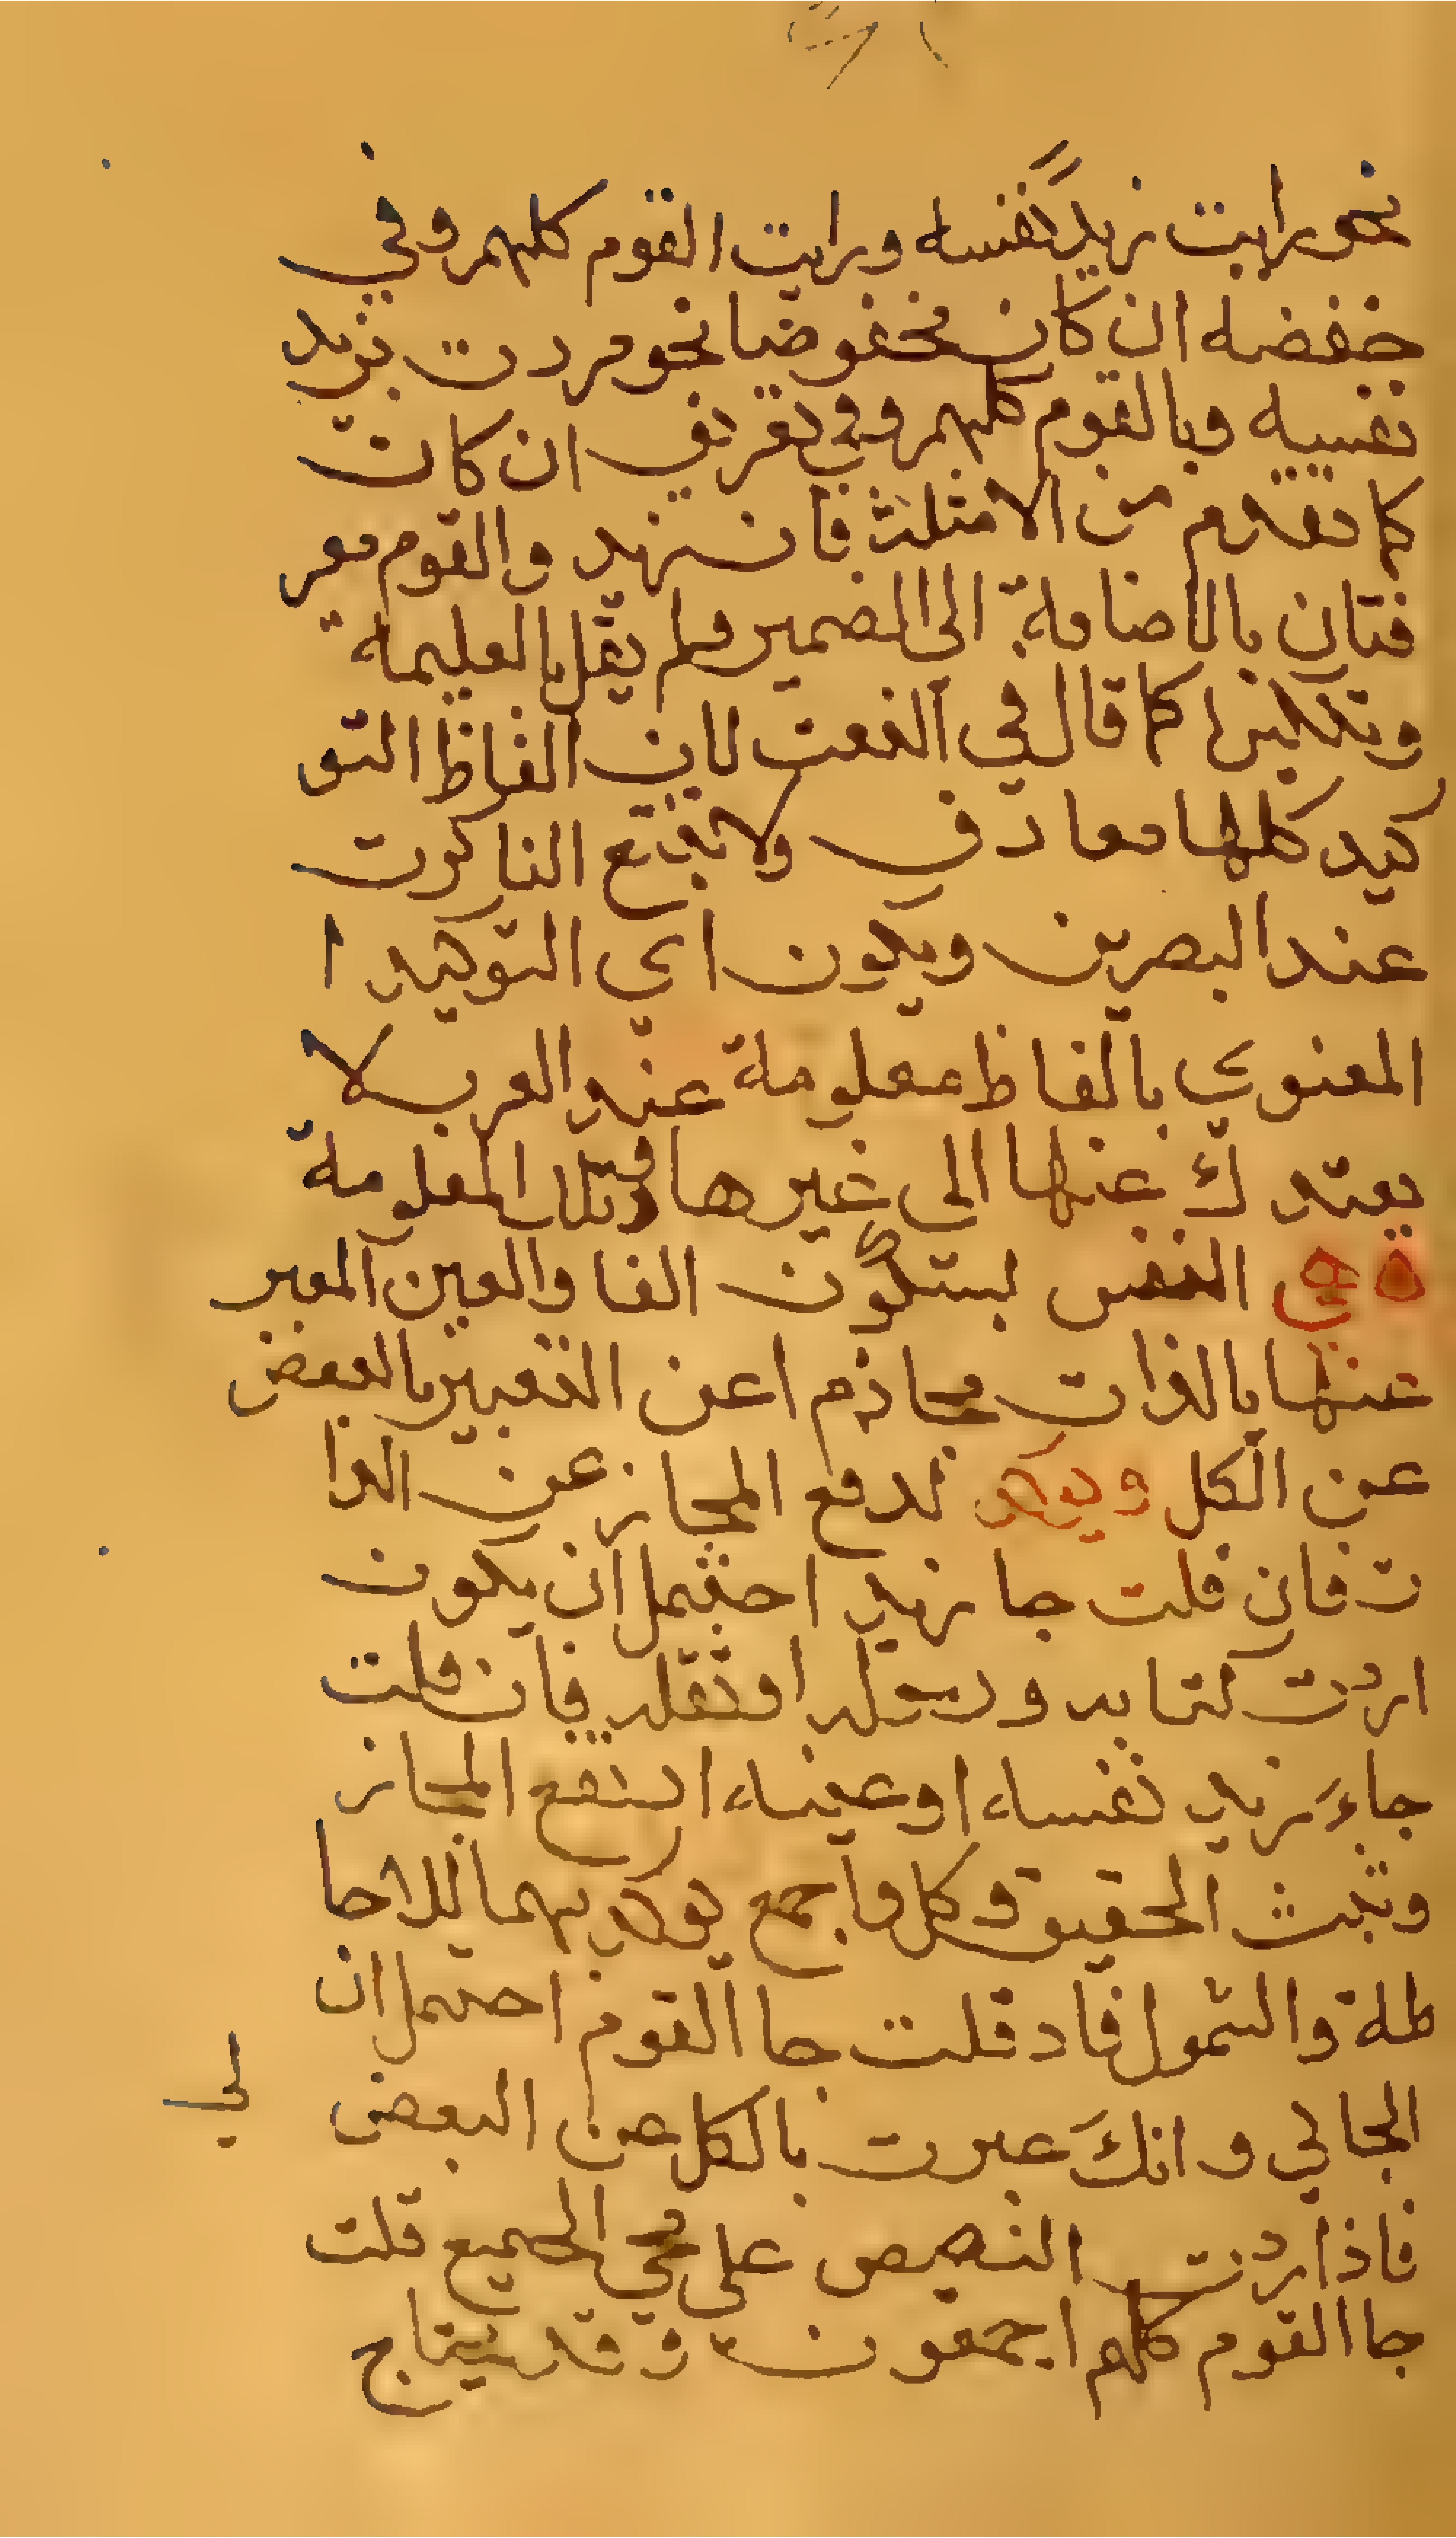 نحو رايت زيدا نفسه ورايت القوم كلهم وفي
خفضه ان كان مخفوضا نحو مررت بزيد
نفسه وبالقوم كلهم وفي تعريف ان كان
كما تقدم من الامثلة فان زيد والقوم معر
فتان بالاضافة الى الضمير ولم يقل بالعلمية
وتنكيرا كما قال في النعت لان الفاظ التو
كيد كلها معارف ولا تتبع الناكرت
عند البصرين ويكون اي التوكيد ا
المعنوي بالفاظ معلومة عند العرب لا
يعتدل عنها الى غيرها وتلك المعلومة
وهي النفس بسكون الفا والعين المعبر
عنها بالذات مجازم اعن التعبير بالبعض
عن الكل ويوكد لدفع المجاز عن الذا
ت فان قلت جا زيد احتمل ان يكون
اردت كتابه ورسله او ثقله فان قلت
جاء زيد نفسه او عينه ارتفع المجاز
وتبث الحقيق وكل واجمع يوكد بهما للاحا
طة والشمول فاد قلت جا القوم احتمل ان
الجا لي وانك عبرت بالكل عن البعض
فاذا اردت التصيص على مجي الجميع قلت
جا القوم كلهم اجمعون وقد يحتاج
لي